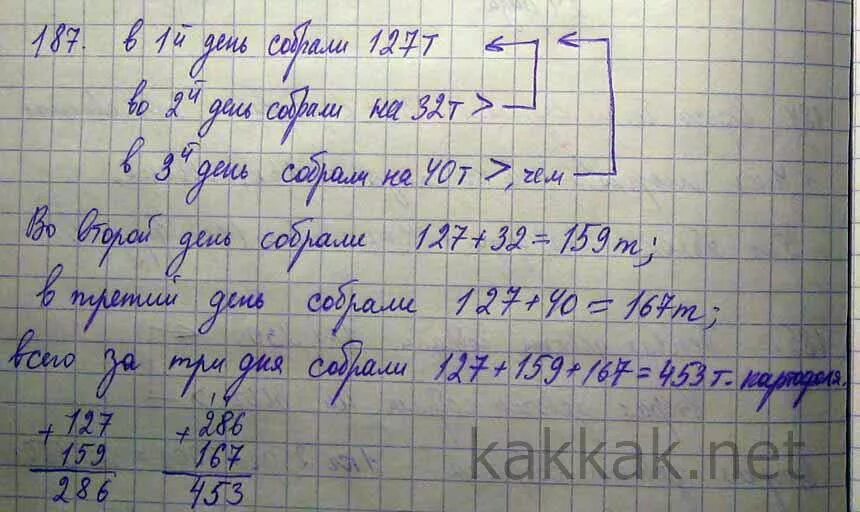 187. в 1й день собрали 127т
во 2й день собрали на 32т >
в 3й день собрали на 40т >, чем
Во второй день собрали 127+32=159т;
в третий день собрали 127+40=167т;
всего за три дня собрали 127+159+167=453т. картофеля.
+127
159
286
+286
167
453
kakkak.net